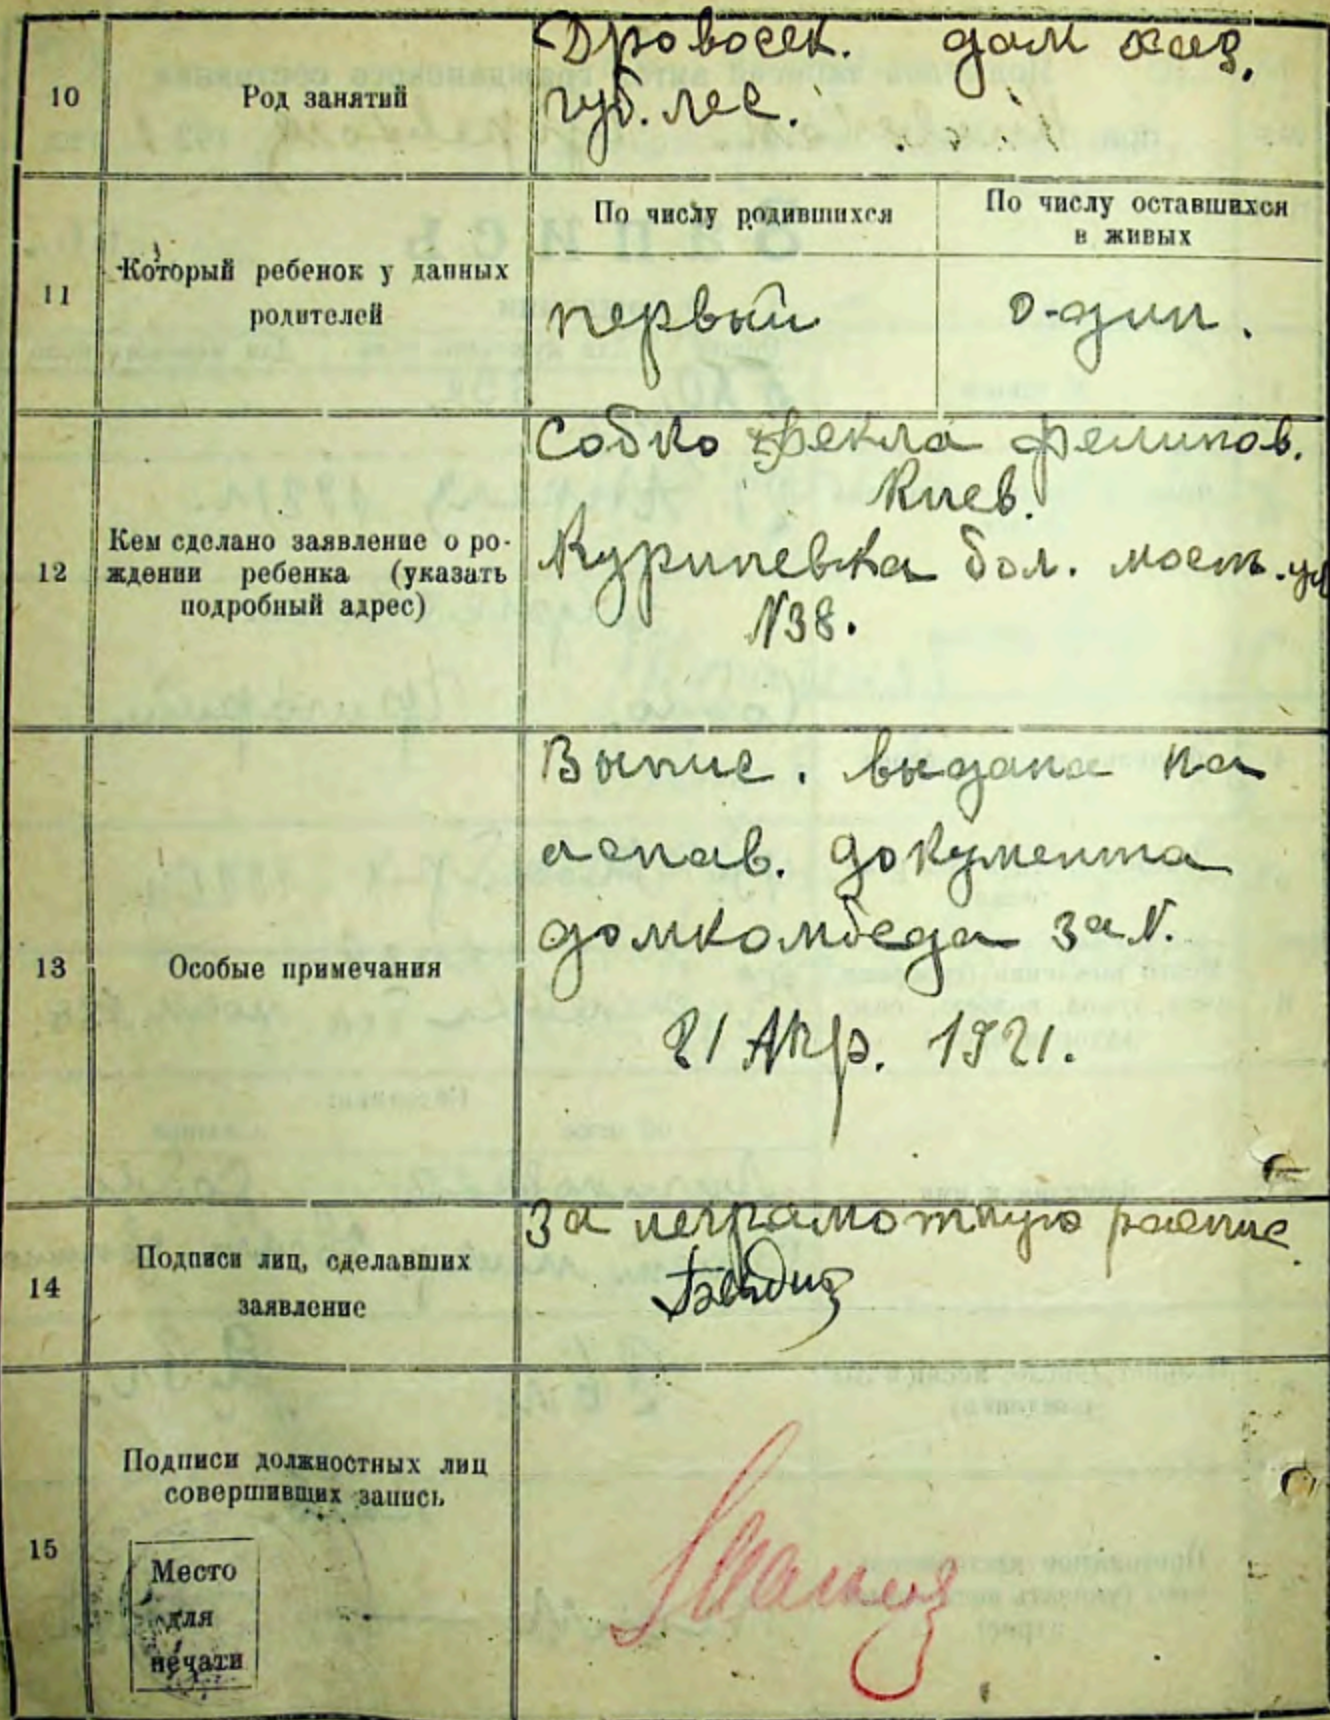 10
Род занятий
Дровосек. дом хоз.
губ. лес.
11
Который ребенок у данных
родителей
По числу родившихся
По числу оставшихся
в живых
первый
о-дин.
12
Кем сделано заявление о ро-
ждении ребенка (указать
подробный адрес)
Собко Фекла Филипов.
Киев.
Куриневка бол. мост. ул
N38.
13
Особые примечания
Выпис. выдана на
основ. документа
домкомбеда за N.
21 Апр. 1921.
14
Подписи лиц, сделавших
заявление
За неграмотную распис.
15
Подписи должностных лиц
совершивших запись
Место
для
печати